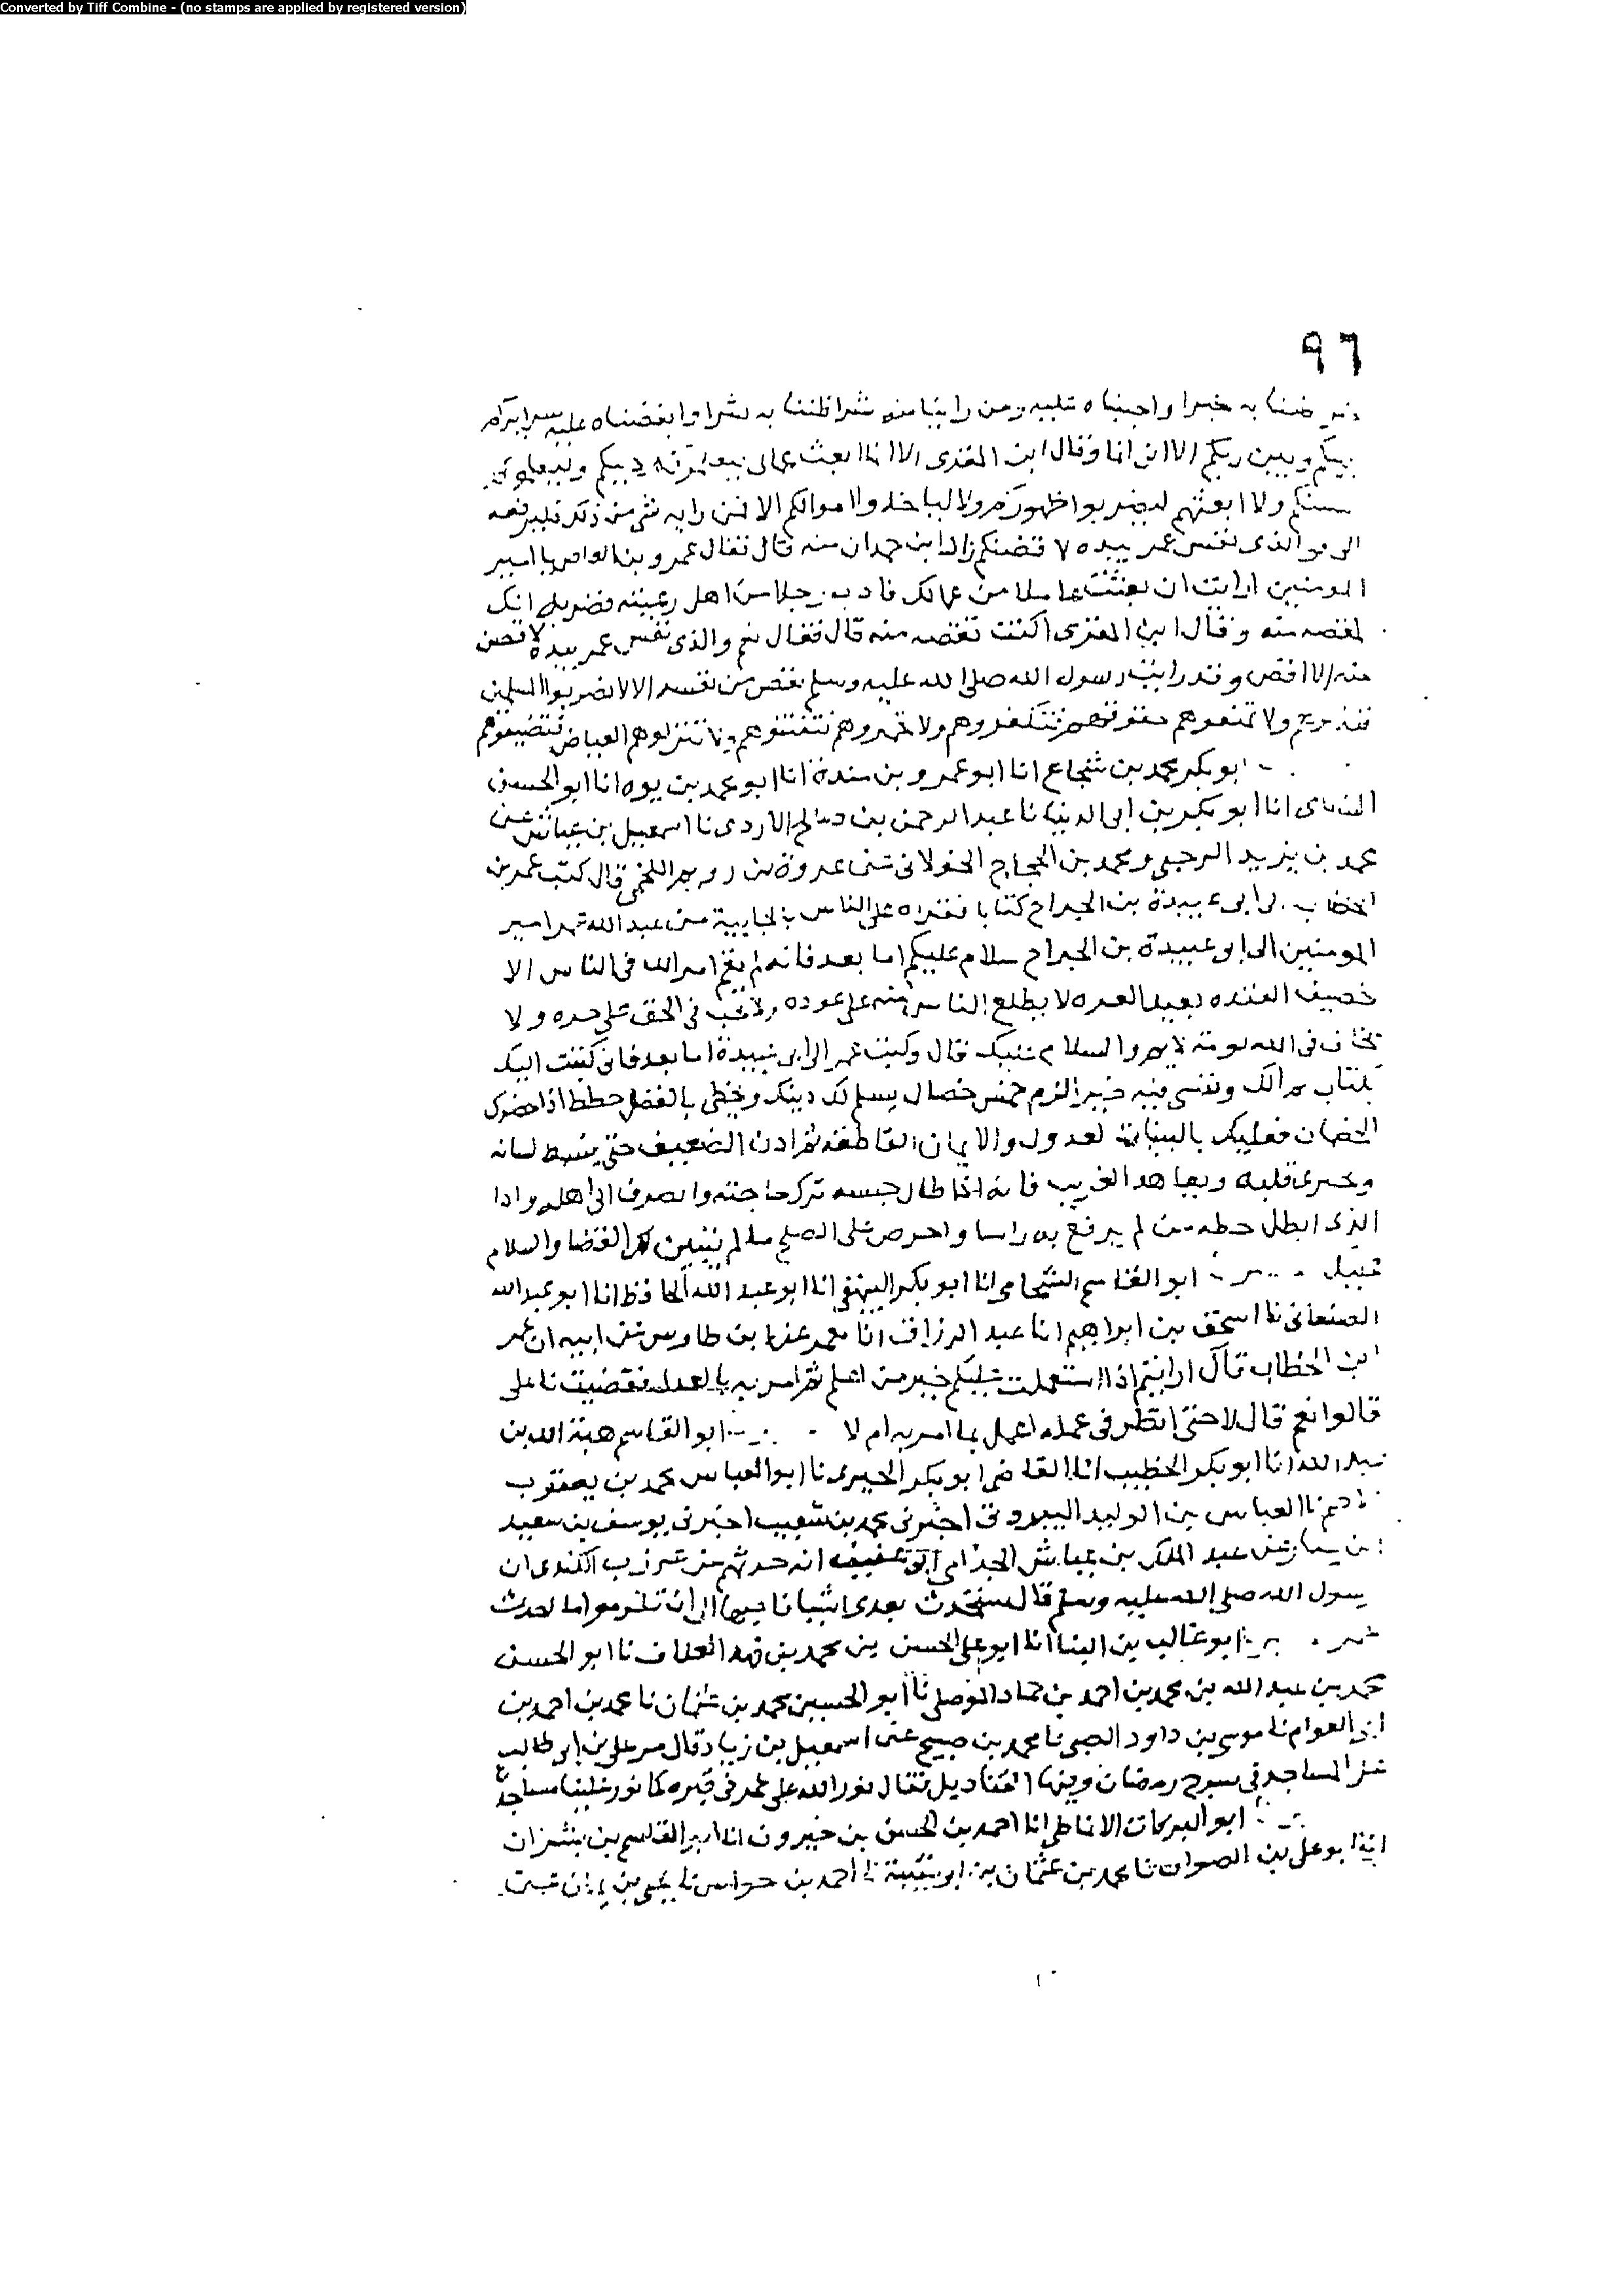 Converted by Tiff Combine - (no stamps are applied by registered version)
٩٦
به خيرا واحببناه عليه ومن راينا منه شرا ظننا به شرا وابغضناه عليه سرايركم
بينكم وبين ربكم الا انى انا وقال ابن المقرى الا انما ابعث عمالى
ولا ابعثهم ليضربوا ظهوركم ولا لياخذوا اموالكم الا فمن رابه شى من ذلك فليرفعه
الى فوالذى نفس عمر بيده لا قصنكم زاد ابن حمدان منه قال فقال عمرو بن العاص يا امير
المومنين ارايت ان بعثت عاملا من عمالك فادب رجلا من اهل رعيته فضربه انك
لمقصه منه وقال ابن المقرى اكنت تقصه منه قال فقال نعم والذى نفس عمر بيده لاقصن
منه الا اقص وقد رايت رسول الله صلى الله عليه وسلم يقص من نفسه الا لا تضربوا المسلمين
ولا تمنعوهم حقوقهم فتكفروهم ولا تجمروهم فتفتنوهم ولا تنزلوهم الغياض فتضيعوهم
ابو بكر محمد بن شجاع انا ابو عمرو بن مندة انا ابو محمد بن يوه انا ابو الحسن
انا ابو بكر بن ابى الدنيا نا عبد الرحمن بن صالح الازدى نا اسمعيل بن عياش عن
محمد بن يزيد الرحبى ومحمد بن الحجاج الخولانى عن عروة بن رويم اللخمى قال كتب عمر بن
الخطاب الى ابى عبيدة بن الجراح كتابا فقراه على الناس بالجابية من عبد الله عمر امير
المومنين الى ابو عبيدة بن الجراح سلام عليكم اما بعد فانه لم يقم امر الله فى الناس الا
حصيف العقده بعيد الغره لا يطلع الناس منه على عوره ولا فى الحق على ولا
يخاف فى الله لومة لايم والسلام عليك قال وكتب عمر الى ابى عبيدة اما بعد فانى كتبت اليك
بكتاب لم الك ونفسى فيه خيرا الزم خمس خصال يسلم لك دينك وتحظى بافضل حظك اذا حضرك
الخصمان فعليك بالبينات العدول والايمان القاطعة ثم ادن الضعيف حتى ينبسط لسانه
ويجترى قلبه وتعاهد الغريب فانه اذا طال حبسه ترك حاجته وانصرف الى اهله واذا
الذى ابطل حقه من لم يرفع به راسا واحرص على الصلح ما لم يتبين لك القضا والسلام
ابو القاسم الشحامى انا ابو بكر البيهقى انا ابو عبد الله الحافظ انا ابو عبد الله
الصنعانى نا اسحق بن ابراهيم انا عبد الرزاق انا معمر عن ابن طاوس عن ابيه ان عمر
ابن الخطاب قال ارايتم اذا استعملت عليكم خير من اعلم ثم امرته بالعدل فقضيت ما على
قالوا نعم قال لا حتى انظر فى عمله اعمل بما امرته ام لا ابو القاسم هبة الله بن
عبد الله انا ابو بكر الخطيب انا القاضى ابو بكر الحيرى نا ابو العباس محمد بن يعقوب
العباس بن الوليد البيروتى اخبرنى محمد بن شعيب اخبرنى يوسف بن سعيد
عن عبد الملك بن عياش الجذامى ابو عفيف انه حدثهم عن عرزب الكندى ان
رسول الله صلى الله عليه وسلم قال ستحدث بعدى اشيا فاحبها الى ان تلزموا ما احدث
عمر ابو غالب بن البنا انا ابو على الحسن بن محمد بن فهد العلاف نا ابو الحسن
محمد بن عبد الله بن محمد بن احمد بن حماد الموصلى نا ابو الحسين محمد بن عثمان نا محمد بن احمد بن
ابى العوام نا موسى بن داود الضبى نا محمد بن صبيح عن اسمعيل بن زياد قال مر على بن ابى طالب
على المساجد فى شهر رمضان وفيها القناديل فقال نور الله على عمر فى قبره كما نور علينا مساجدنا
ابو البركات الانماطى انا احمد بن الحسن بن خيرون انا ابو القاسم بن بشران
ابو على بن الصواف نا محمد بن عثمان بن ابى شيبة نا احمد بن حواس نا يحيى بن يمان